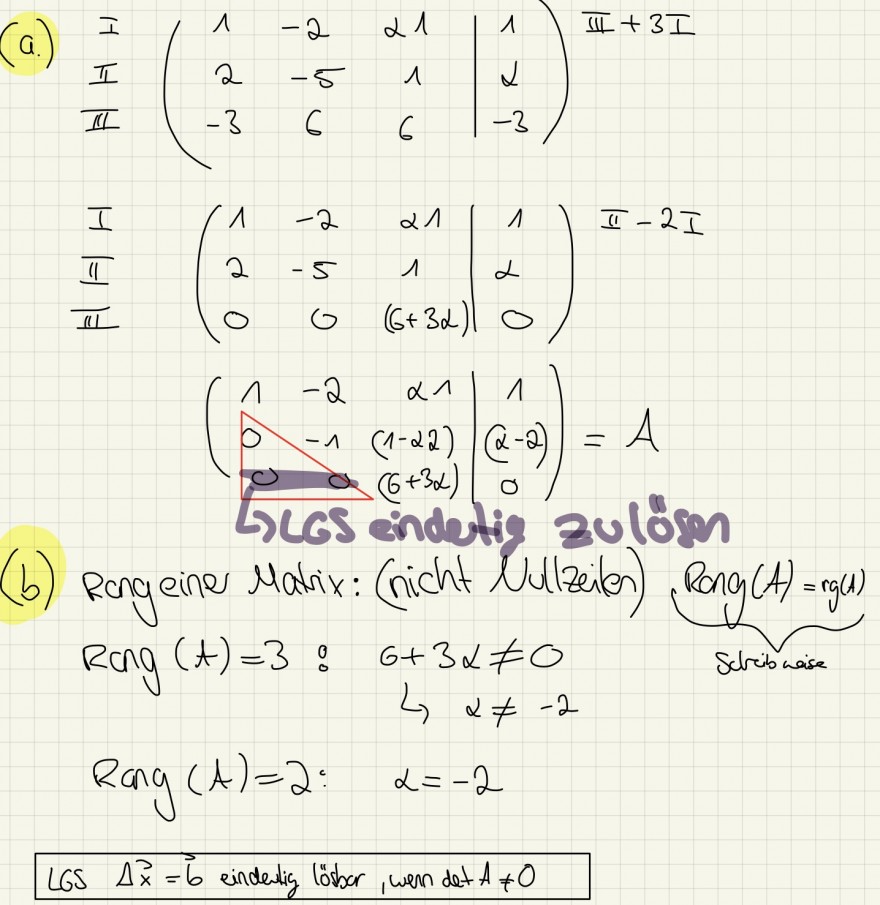 (a.)
I 1 -2 α1 | 1 III + 3I
II 2 -5 1 | α
III -3 6 6 | -3
I 1 -2 α1 | 1 II - 2I
II 2 -5 1 | α
III 0 0 (6+3α) | 0
1 -2 α1 | 1
0 -1 (1-α2) | (α-2) = A
0 0 (6+3α) | 0
↳ LGS eindeutig zu lösen
(b) Rang einer Matrix: (nicht Nullzeilen) Rang(A) = rg(A)
Schreibweise
Rang (A) = 3 : 6 + 3α ≠ 0
↳ α ≠ -2
Rang (A) = 2: α = -2
LGS Ax⃗ = b⃗ eindeutig lösbar, wenn det A ≠ 0